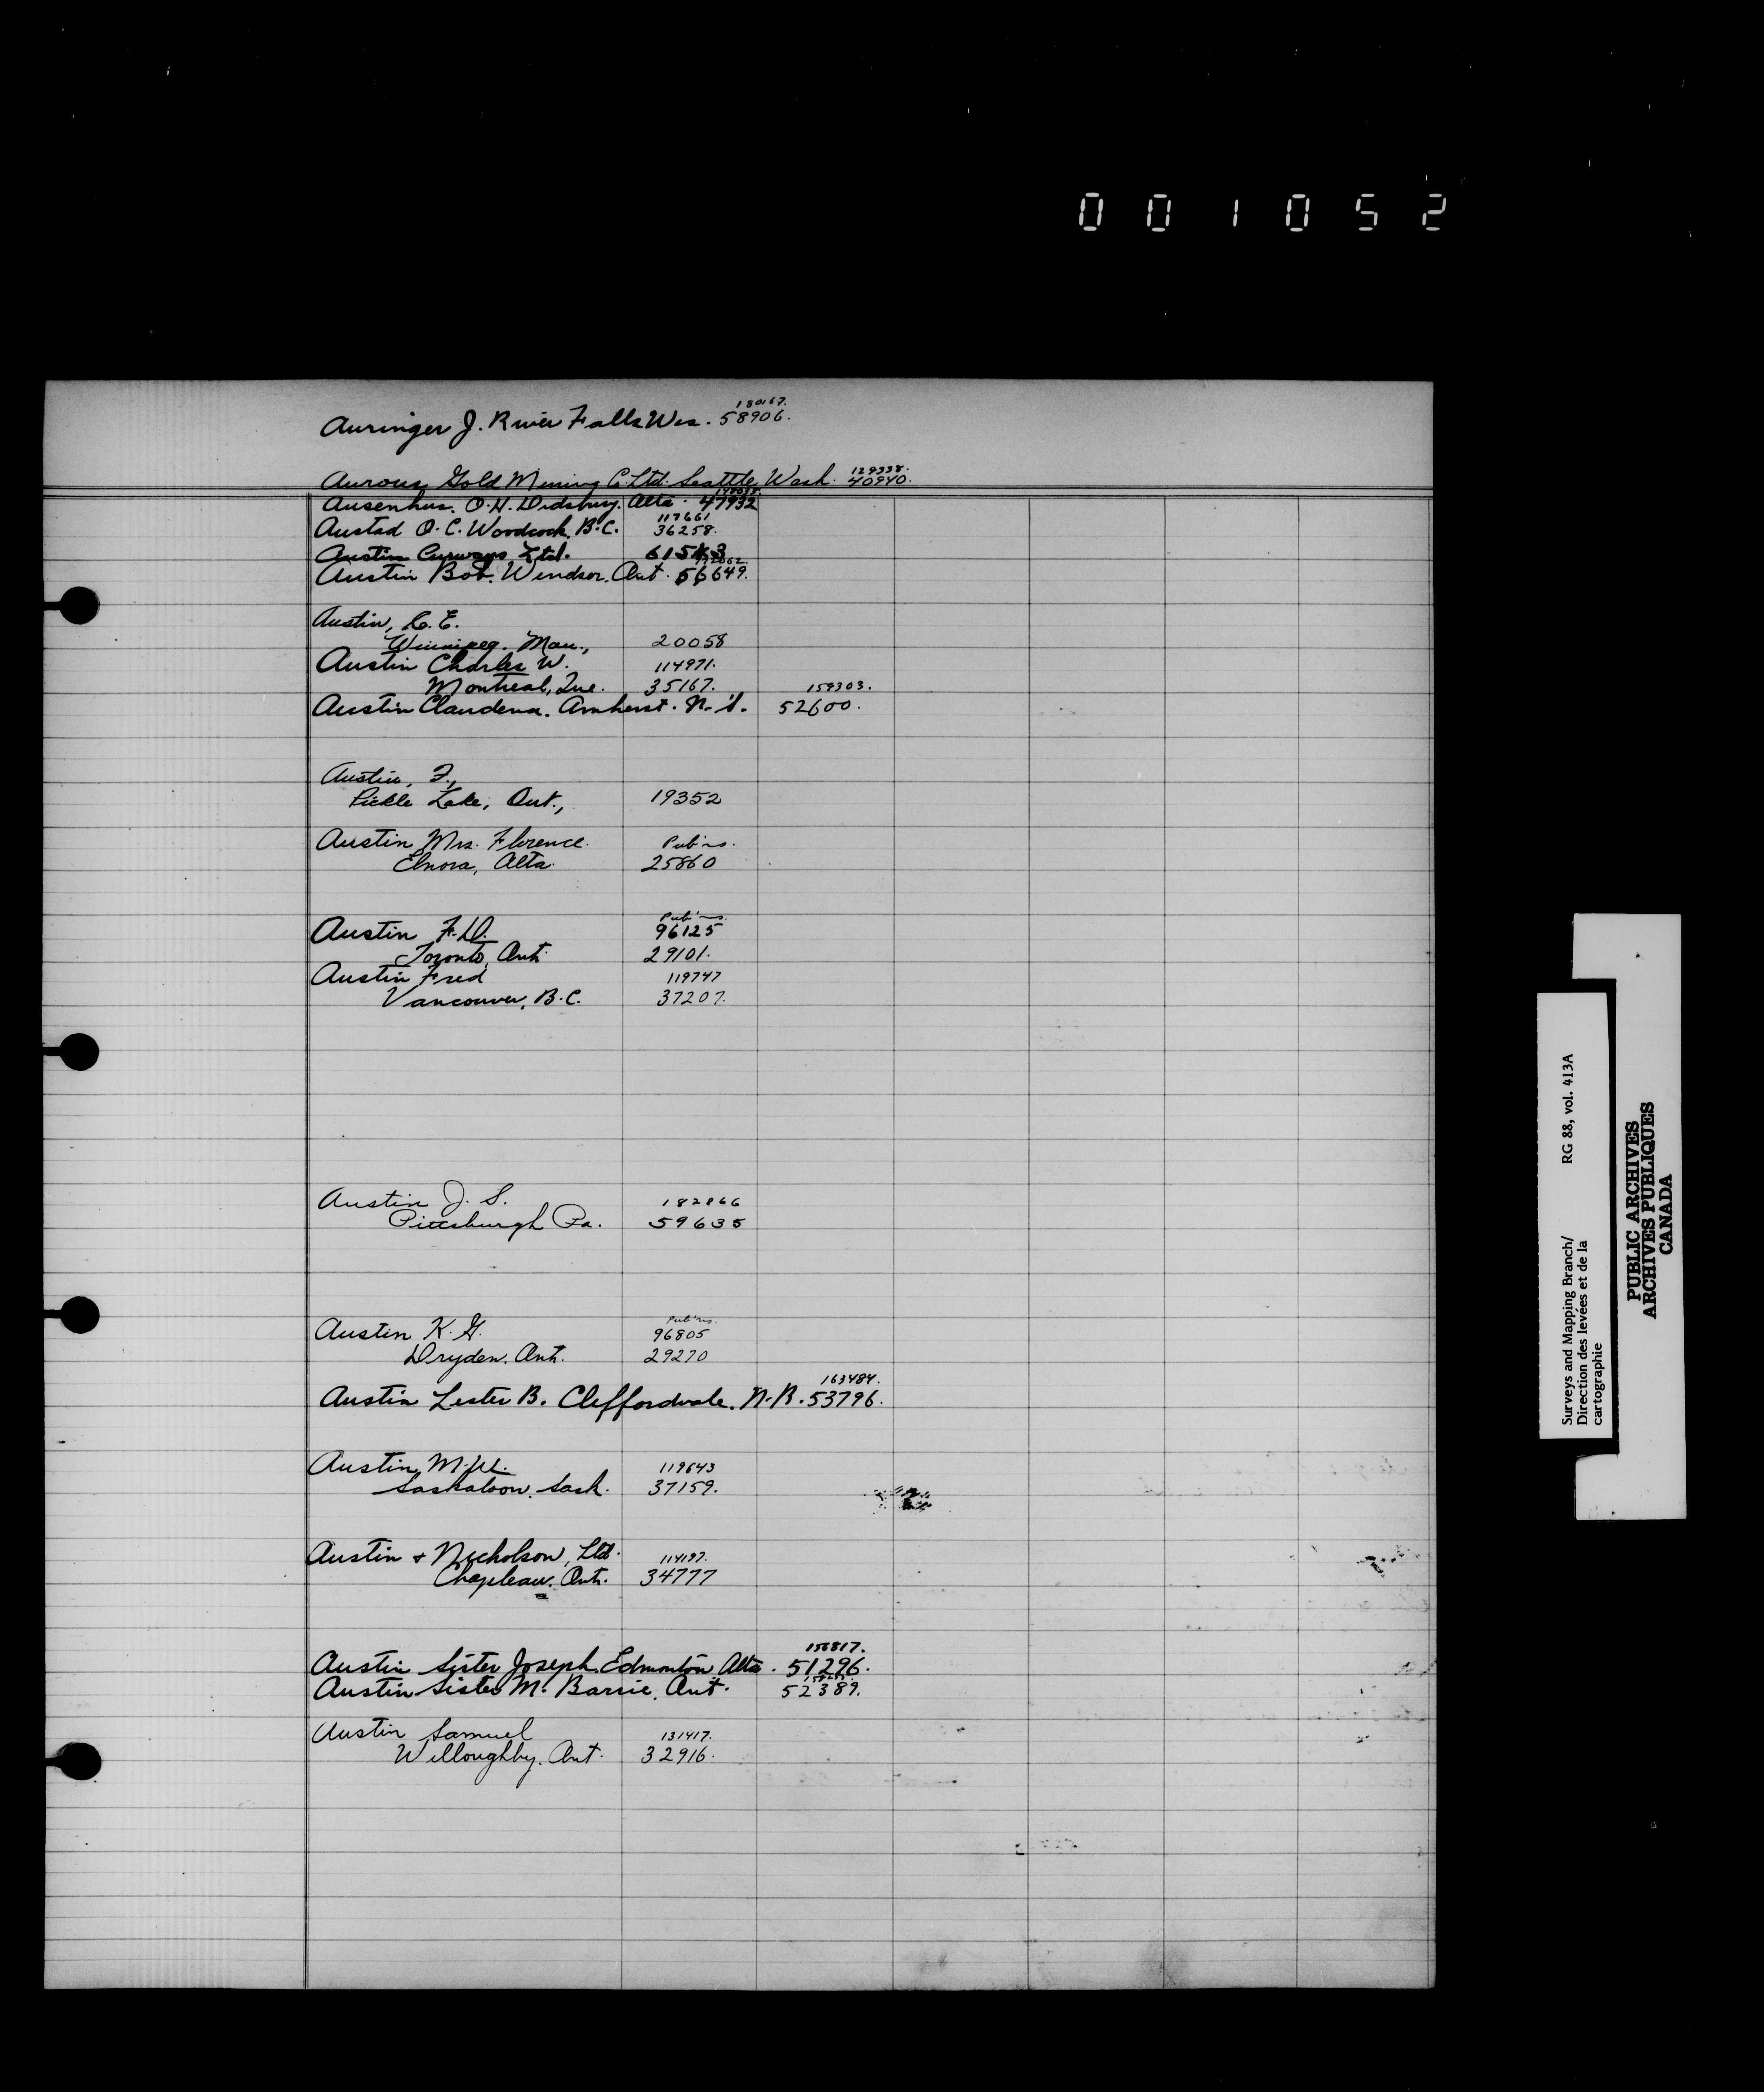 001052
180167.
Auringer J. River Falls Wis. 58906.
129338.
Aurous Gold Mining Co. Ltd. Seattle, Wash. 40940.
Ausenhus. O.H. Didsbury. Alta. 47932
117661
Austad O.C. Woodcock, B.C. 36258.
Austin Ltd.
Austin Bob. Windsor. Ont. 56649.
Austin, C. E.
Winnipeg. Man., 20058
Austin Charles W. 114971.
Montreal, Que. 35167.
159303.
Austin Claudena. Amherst. N.S. 52600.
Austin, F.,
Pickle Lake, Ont., 19352
Austin Mrs. Florence. Pub'ns.
Elnora, Alta. 25860
Pub'ns.
Austin F.D. 96125
Toronto, Ont. 29101.
Austin Fred 119747
Vancouver, B.C. 37207.
Austin J. S. 182866
Pittsburgh Pa. 59635
Pub'ns.
Austin K. G. 96805
Dryden. Ont. 29270
163484.
Austin Lester B. Cleffordvale. N.B. 53796.
Austin, M.W. 119643
Saskatoon. Sask. 37159.
Austin + Nicholson, Ltd. 114197.
Chapleau. Ont. 34777
156817.
Austin Sister Joseph. Edmonton Alta. 51296.
Austin Sister M. Barrie. Ont. 52389.
Austin Samuel 131417.
Willoughby. Ont. 32916.
Surveys and Mapping Branch/ RG 88, vol. 413A
Direction des levées et de la
cartographie
PUBLIC ARCHIVES
ARCHIVES PUBLIQUES
CANADA